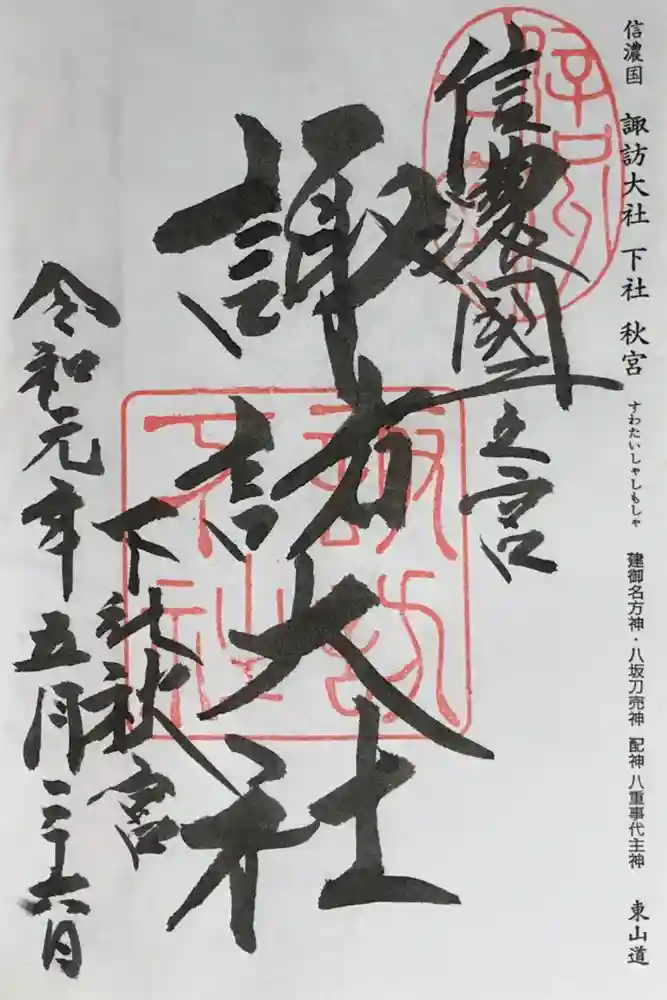 信濃国　諏訪大社　下社　秋宮　すわたいしゃしもしゃ　建御名方神・八坂刀売神　配神　八重事代主神　東山道
信濃國之宮
諏訪大社
下社秋宮
令和元年五月二十六日
諏訪
下社